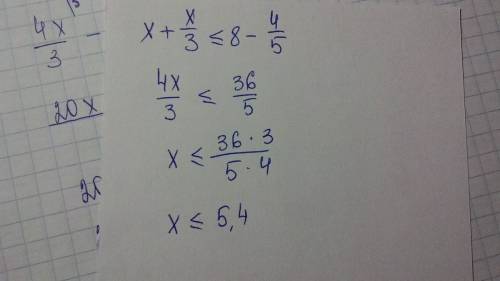 4x/3 -
20x
x + x/3 ≤ 8 - 4/5
4x/3 ≤ 36/5
x ≤ 36 · 3 / 5 · 4
x ≤ 5,4